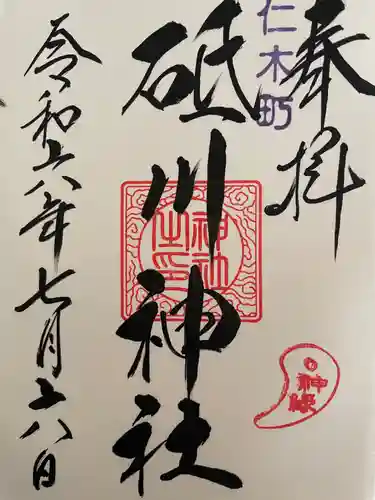 奉拝
仁木町
砥川神社
神社之印
神縁
令和六年七月二八日